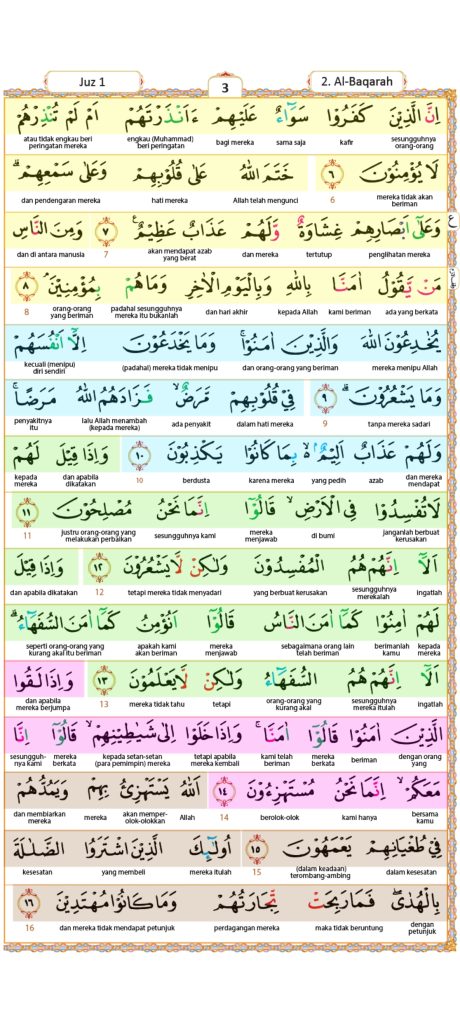 Juz 1
3
2. Al-Baqarah
اِنَّ الَّذِيْنَ كَفَرُوْا سَوَاۤءٌ عَلَيْهِمْ ءَاَنْذَرْتَهُمْ اَمْ لَمْ تُنْذِرْهُمْ
sesungguhnya orang-orang kafir sama saja bagi mereka engkau (Muhammad) beri peringatan atau tidak engkau beri peringatan mereka
لَا يُؤْمِنُوْنَ ٦ خَتَمَ اللّٰهُ عَلٰى قُلُوْبِهِمْ وَعَلٰى سَمْعِهِمْ ۗ
mereka tidak akan beriman 6 Allah telah mengunci hati mereka dan pendengaran mereka
وَعَلٰٓى اَبْصَارِهِمْ غِشَاوَةٌ وَّلَهُمْ عَذَابٌ عَظِيْمٌ ࣖ ٧ وَمِنَ النَّاسِ
penglihatan mereka tertutup dan mereka akan mendapat azab yang berat 7 dan di antara manusia
مَنْ يَّقُوْلُ اٰمَنَّا بِاللّٰهِ وَبِالْيَوْمِ الْاٰخِرِ وَمَا هُمْ بِمُؤْمِنِيْنَ ۘ ٨
ada yang berkata kami beriman kepada Allah dan hari akhir padahal sesungguhnya mereka itu bukanlah orang-orang yang beriman 8
يُخٰدِعُوْنَ اللّٰهَ وَالَّذِيْنَ اٰمَنُوْا ۚ وَمَا يَخْدَعُوْنَ اِلَّآ اَنْفُسَهُمْ
mereka menipu Allah dan orang-orang yang beriman (padahal) mereka tidak menipu kecuali (menipu) diri sendiri
وَمَا يَشْعُرُوْنَ ۗ ٩ فِيْ قُلُوْبِهِمْ مَّرَضٌ ۙ فَزَادَهُمُ اللّٰهُ مَرَضًا ۚ
tanpa mereka sadari 9 dalam hati mereka ada penyakit lalu Allah menambah (kepada mereka) penyakitnya itu
وَلَهُمْ عَذَابٌ اَلِيْمٌ ۢ ەۙ بِمَا كَانُوْا يَكْذِبُوْنَ ١٠ وَاِذَا قِيْلَ لَهُمْ
dan mereka mendapat azab yang pedih karena mereka berdusta 10 dan apabila dikatakan kepada mereka
لَا تُفْسِدُوْا فِى الْاَرْضِۙ قَالُوْٓا اِنَّمَا نَحْنُ مُصْلِحُوْنَ ١١
janganlah berbuat kerusakan di bumi mereka menjawab sesungguhnya kami justru orang-orang yang melakukan perbaikan 11
اَلَآ اِنَّهُمْ هُمُ الْمُفْسِدُوْنَ وَلٰكِنْ لَّا يَشْعُرُوْنَ ١٢ وَاِذَا قِيْلَ
ingatlah sesungguhnya merekalah yang berbuat kerusakan tetapi mereka tidak menyadari 12 dan apabila dikatakan
لَهُمْ اٰمِنُوْا كَمَآ اٰمَنَ النَّاسُ قَالُوْٓا اَنُؤْمِنُ كَمَآ اٰمَنَ السُّفَهَاۤءُ ۗ
kepada mereka berimanlah kamu sebagaimana orang lain telah beriman mereka menjawab apakah kami akan beriman seperti orang-orang yang kurang akal itu beriman
اَلَآ اِنَّهُمْ هُمُ السُّفَهَاۤءُ وَلٰكِنْ لَّا يَعْلَمُوْنَ ١٣ وَاِذَا لَقُوا
ingatlah sesungguhnya mereka itulah orang-orang yang kurang akal tetapi mereka tidak tahu 13 dan apabila mereka berjumpa
الَّذِيْنَ اٰمَنُوْا قَالُوْٓا اٰمَنَّا ۚ وَاِذَا خَلَوْا اِلٰى شَيٰطِيْنِهِمْ ۙ قَالُوْٓا اِنَّا
dengan orang yang beriman mereka berkata kami telah beriman tetapi apabila mereka kembali kepada setan-setan (para pemimpin) mereka mereka berkata sesungguhnya kami
مَعَكُمْ ۙ اِنَّمَا نَحْنُ مُسْتَهْزِءُوْنَ ١٤ اَللّٰهُ يَسْتَهْزِئُ بِهِمْ وَيَمُدُّهُمْ
bersama kamu kami hanya berolok-olok 14 Allah akan memperolok-olokkan mereka dan membiarkan mereka
فِيْ طُغْيَانِهِمْ يَعْمَهُوْنَ ١٥ اُولٰۤىِٕكَ الَّذِيْنَ اشْتَرَوُا الضَّلٰلَةَ
dalam kesesatan (dalam keadaan) terombang-ambing 15 mereka itulah yang membeli kesesatan
بِالْهُدٰىۖ فَمَا رَبِحَتْ تِّجَارَتُهُمْ وَمَا كَانُوْا مُهْتَدِيْنَ ١٦
dengan petunjuk maka tidak beruntung perdagangan mereka dan mereka tidak mendapat petunjuk 16